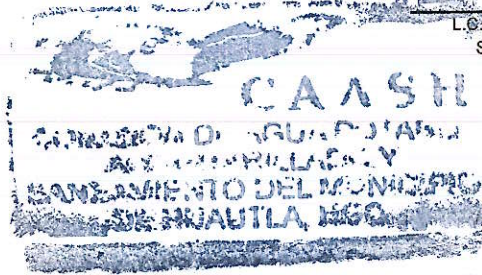 L.C.
S
CAASH
COMISIÓN DE AGUA POTABLE
ALCANTARILLADO Y
SANEAMIENTO DEL MUNICIPIO
DE HUAUTLA, HGO.